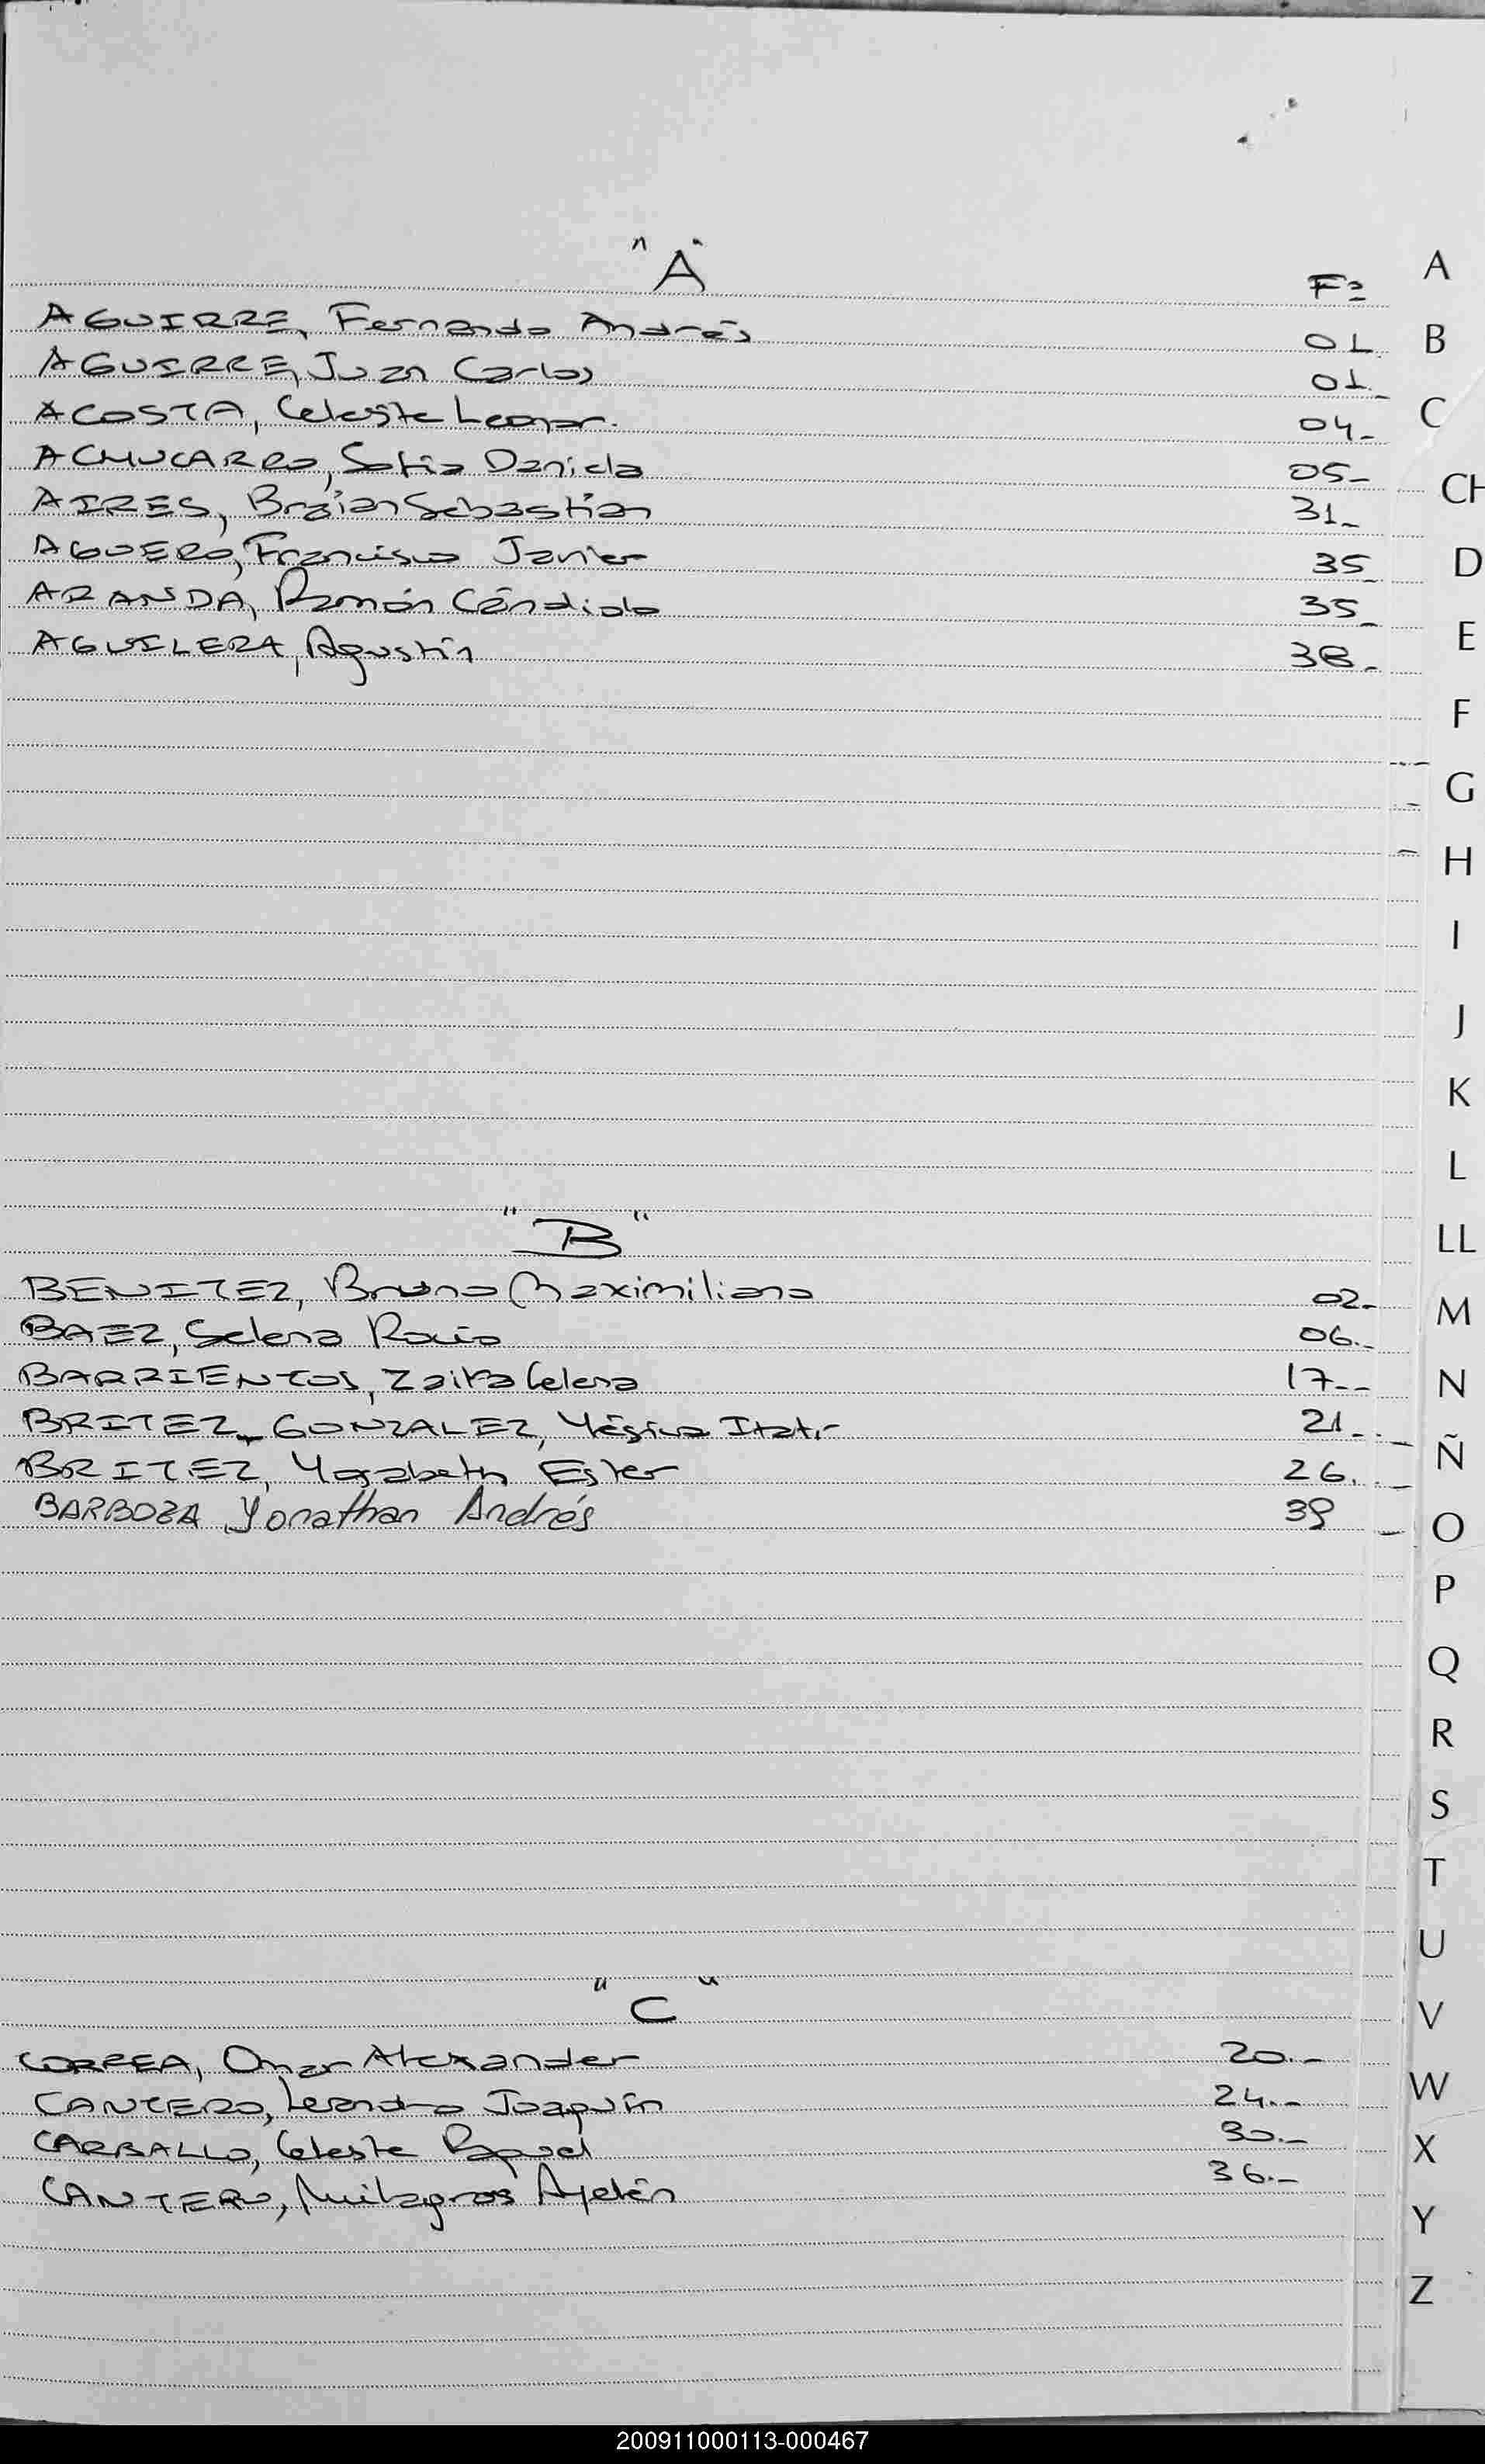 "A"
Fº A
AGUIRRE, Fernando Andrés 01. B
AGUIRRE, Juan Carlos 01.
ACOSTA, Celeste Leonor. 04- C
ACHUCARRO, Sofia Daniela 05- CH
AIRES, Braian Sebastian 31-
AGUERO, Francisco Javier 35- D
ARANDA, Ramón Cándido 35-
AGUILERA, Agustín 38- E
F
G
H
I
J
K
L
"B" LL
BENITEZ, Bruno Maximiliano 02- M
BAEZ, Selena Rocio 06.-
BARRIENTOS, Zaira Celena 17.-- N
BRITEZ - GONZALEZ, Yésica Itatí 21-.
BRITEZ, Yasabeth Ester 26. Ñ
BARBOZA, Yonathan Andrés 39 O
P
Q
R
S
T
U
"C" V
CORREA, Omar Alexander 20.-
CANTERO, Leandro Joaquín 24.- W
CARBALLO, Celeste Raquel 30.- X
CANTERO, Milagros Ayelén 36.-
Y
Z
200911000113-000467